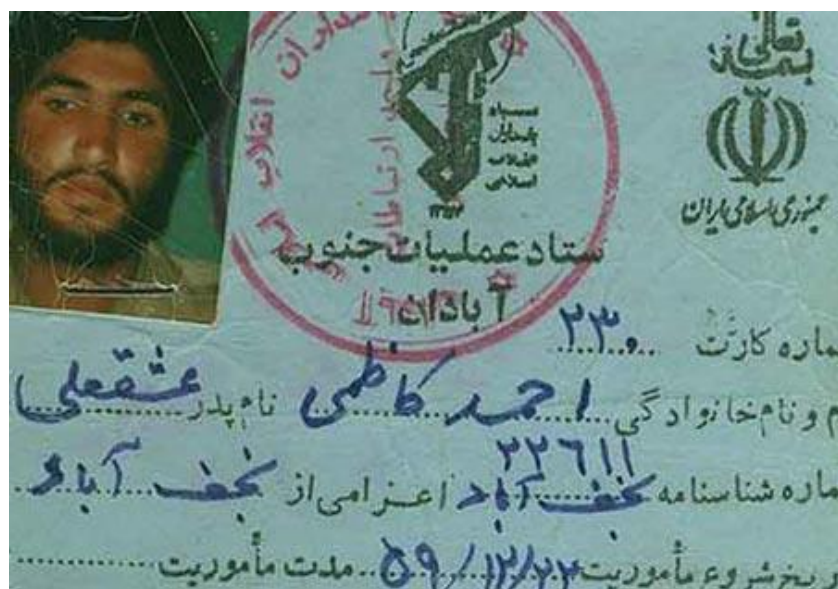 بسمه تعالی
جمهوری اسلامی ایران
سپاه
پاسداران
انقلاب
اسلامی
ستاد عملیات جنوب
آبادان
ماره کارت ۲۳۰
م و نام خانوادگی احمد کاظمی نام پدر عشقعلی
ماره شناسنامه ۲۲۶۱۱ نجف آباد اعزامی از نجف آباد
ریخ شروع مأموریت ۵۹/۱۲/۲۲ مدت مأموریت